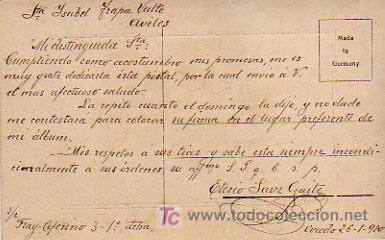 Sta Isabel Trapa Vulte
Aviles
Mi distinguida Sta:
Cumpliendo como acostumbro mis promesas, me es
muy grato dedicarla ésta postal, por la cual envio a V.
el mas afectuoso saludo.
La repito cuanto el domingo la dije, y no dudo
me contestará para colocar su firma en el lugar preferente de
mi álbum.
Mis respetos a sus tias y sabe esta siempre incondi-
cionalmente a sus órdenes su affmo S. S. q. b. s. p.
Elerio
s/c
Fray Ceferino 3-1º dcha.
Oviedo 26-1-910
Made
in
Germany
TC todocoleccion
www.todocoleccion.net